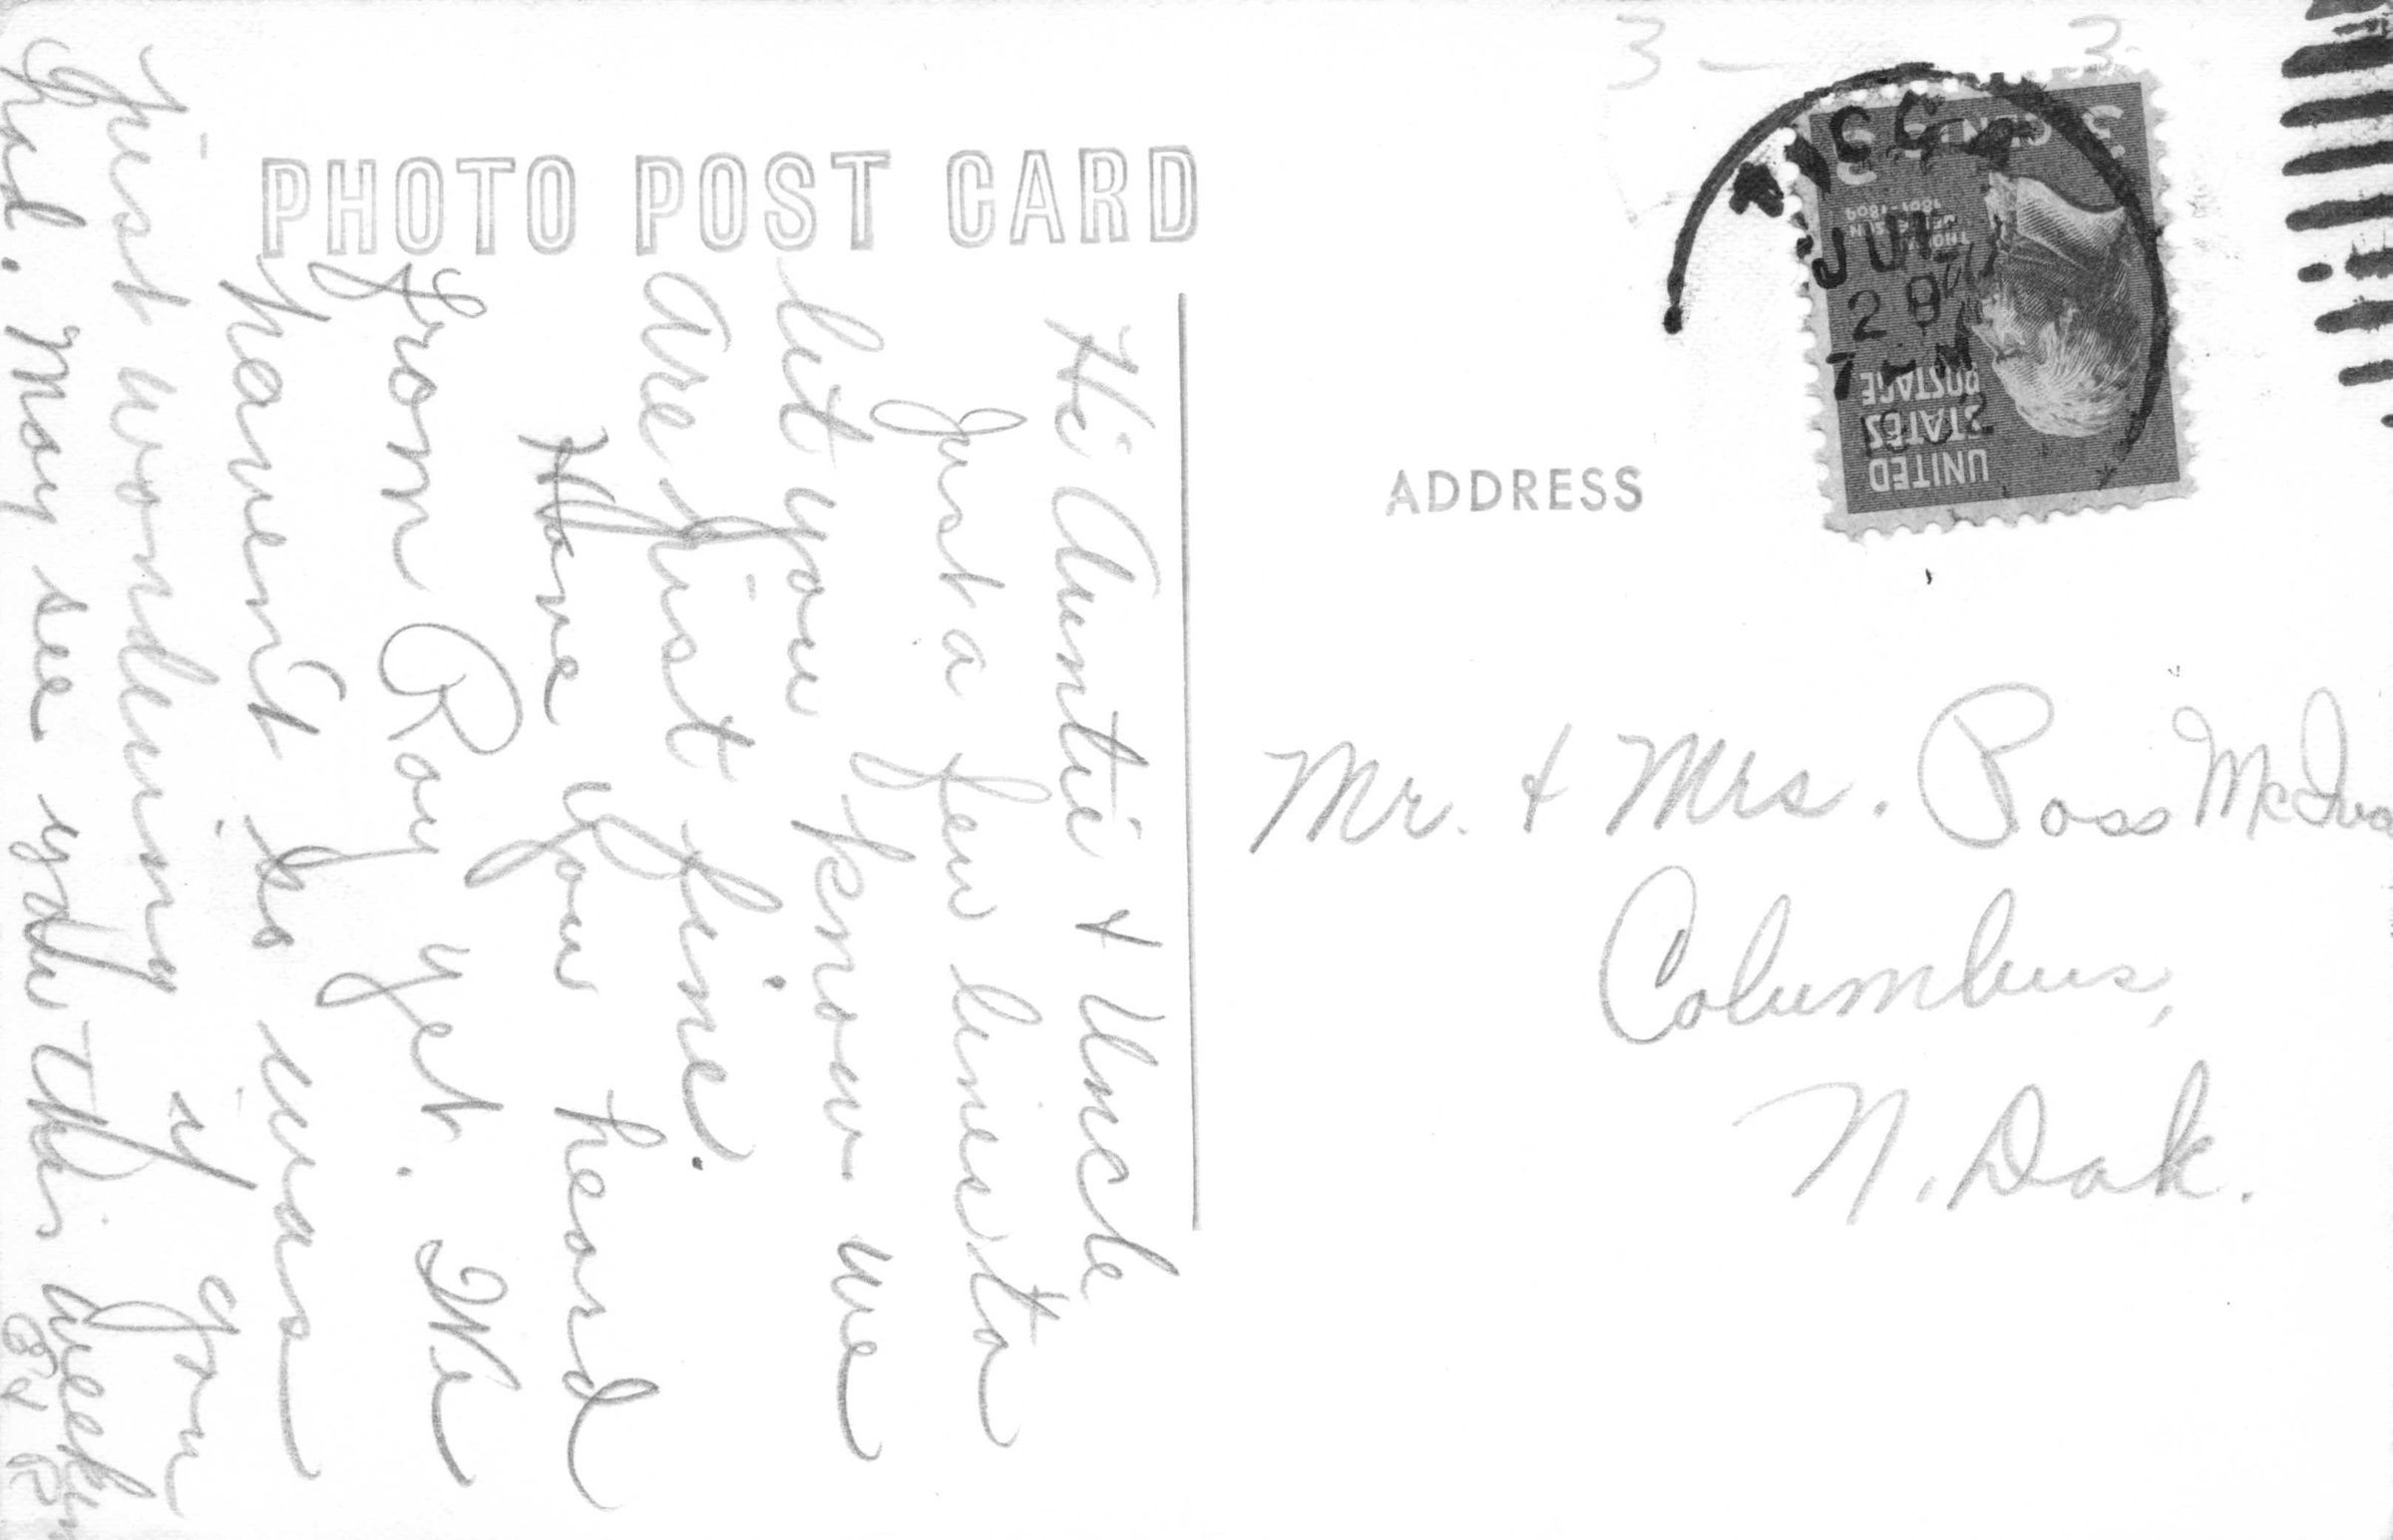 PHOTO POST CARD
Hi Auntie & Uncle
Just a few lines to
let you know we
are just fine.
Have you heard
from Ray yet. We
haven't so was
just wondering if you
had. May see you this week
ADDRESS
Mr. & Mrs. Ross McIva
Columbus,
N. Dak.
3 — 3
JUL
28
7
UNITED
STATES
POSTAGE
THOMAS
JEFFERSON
1801-1809
3 CENTS 3